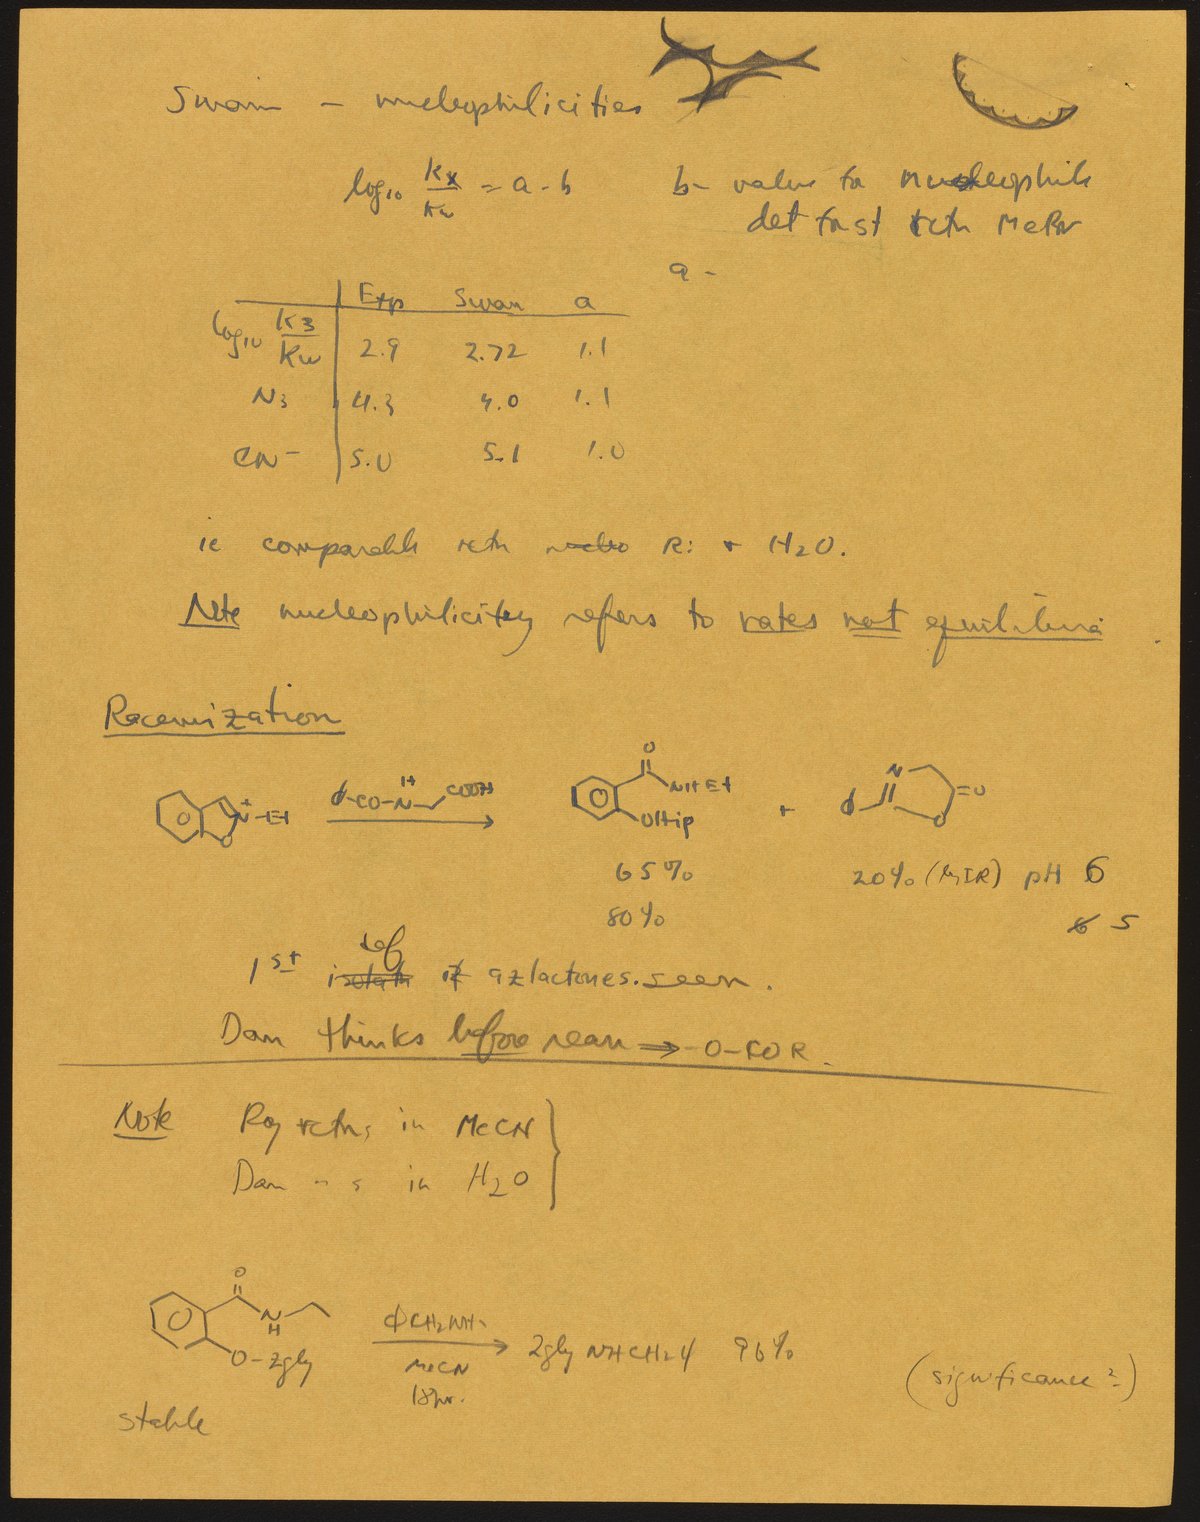 Swain - nucleophilicities
log10 Kx/Kw = a - b
b - value for nucleophile
det fast rctn MePN
a -
Exp Swain a
log10 K3/Kw 2.9 2.72 1.1
N3 4.3 4.0 1.1
CN- 5.0 5.1 1.0
ie comparable rctn R: + H2O.
Note nucleophilicity refers to rates not equilibria
Racemization
N+-Et O
ϕ-CO-N-COOH
H
O NHEt OHip
+
ϕ N O =O
65% 20% (by IR) pH 6
80% 5
1st if azlactones seen.
Dan thinks before rean → -O-COR.
Note Roy rctns in MeCN
Dan " s in H2O
O N H O-Zgly
ϕCH2NH2
MeCN
18hr.
Zgly NHCH2ϕ 96%
(significance?)
stable